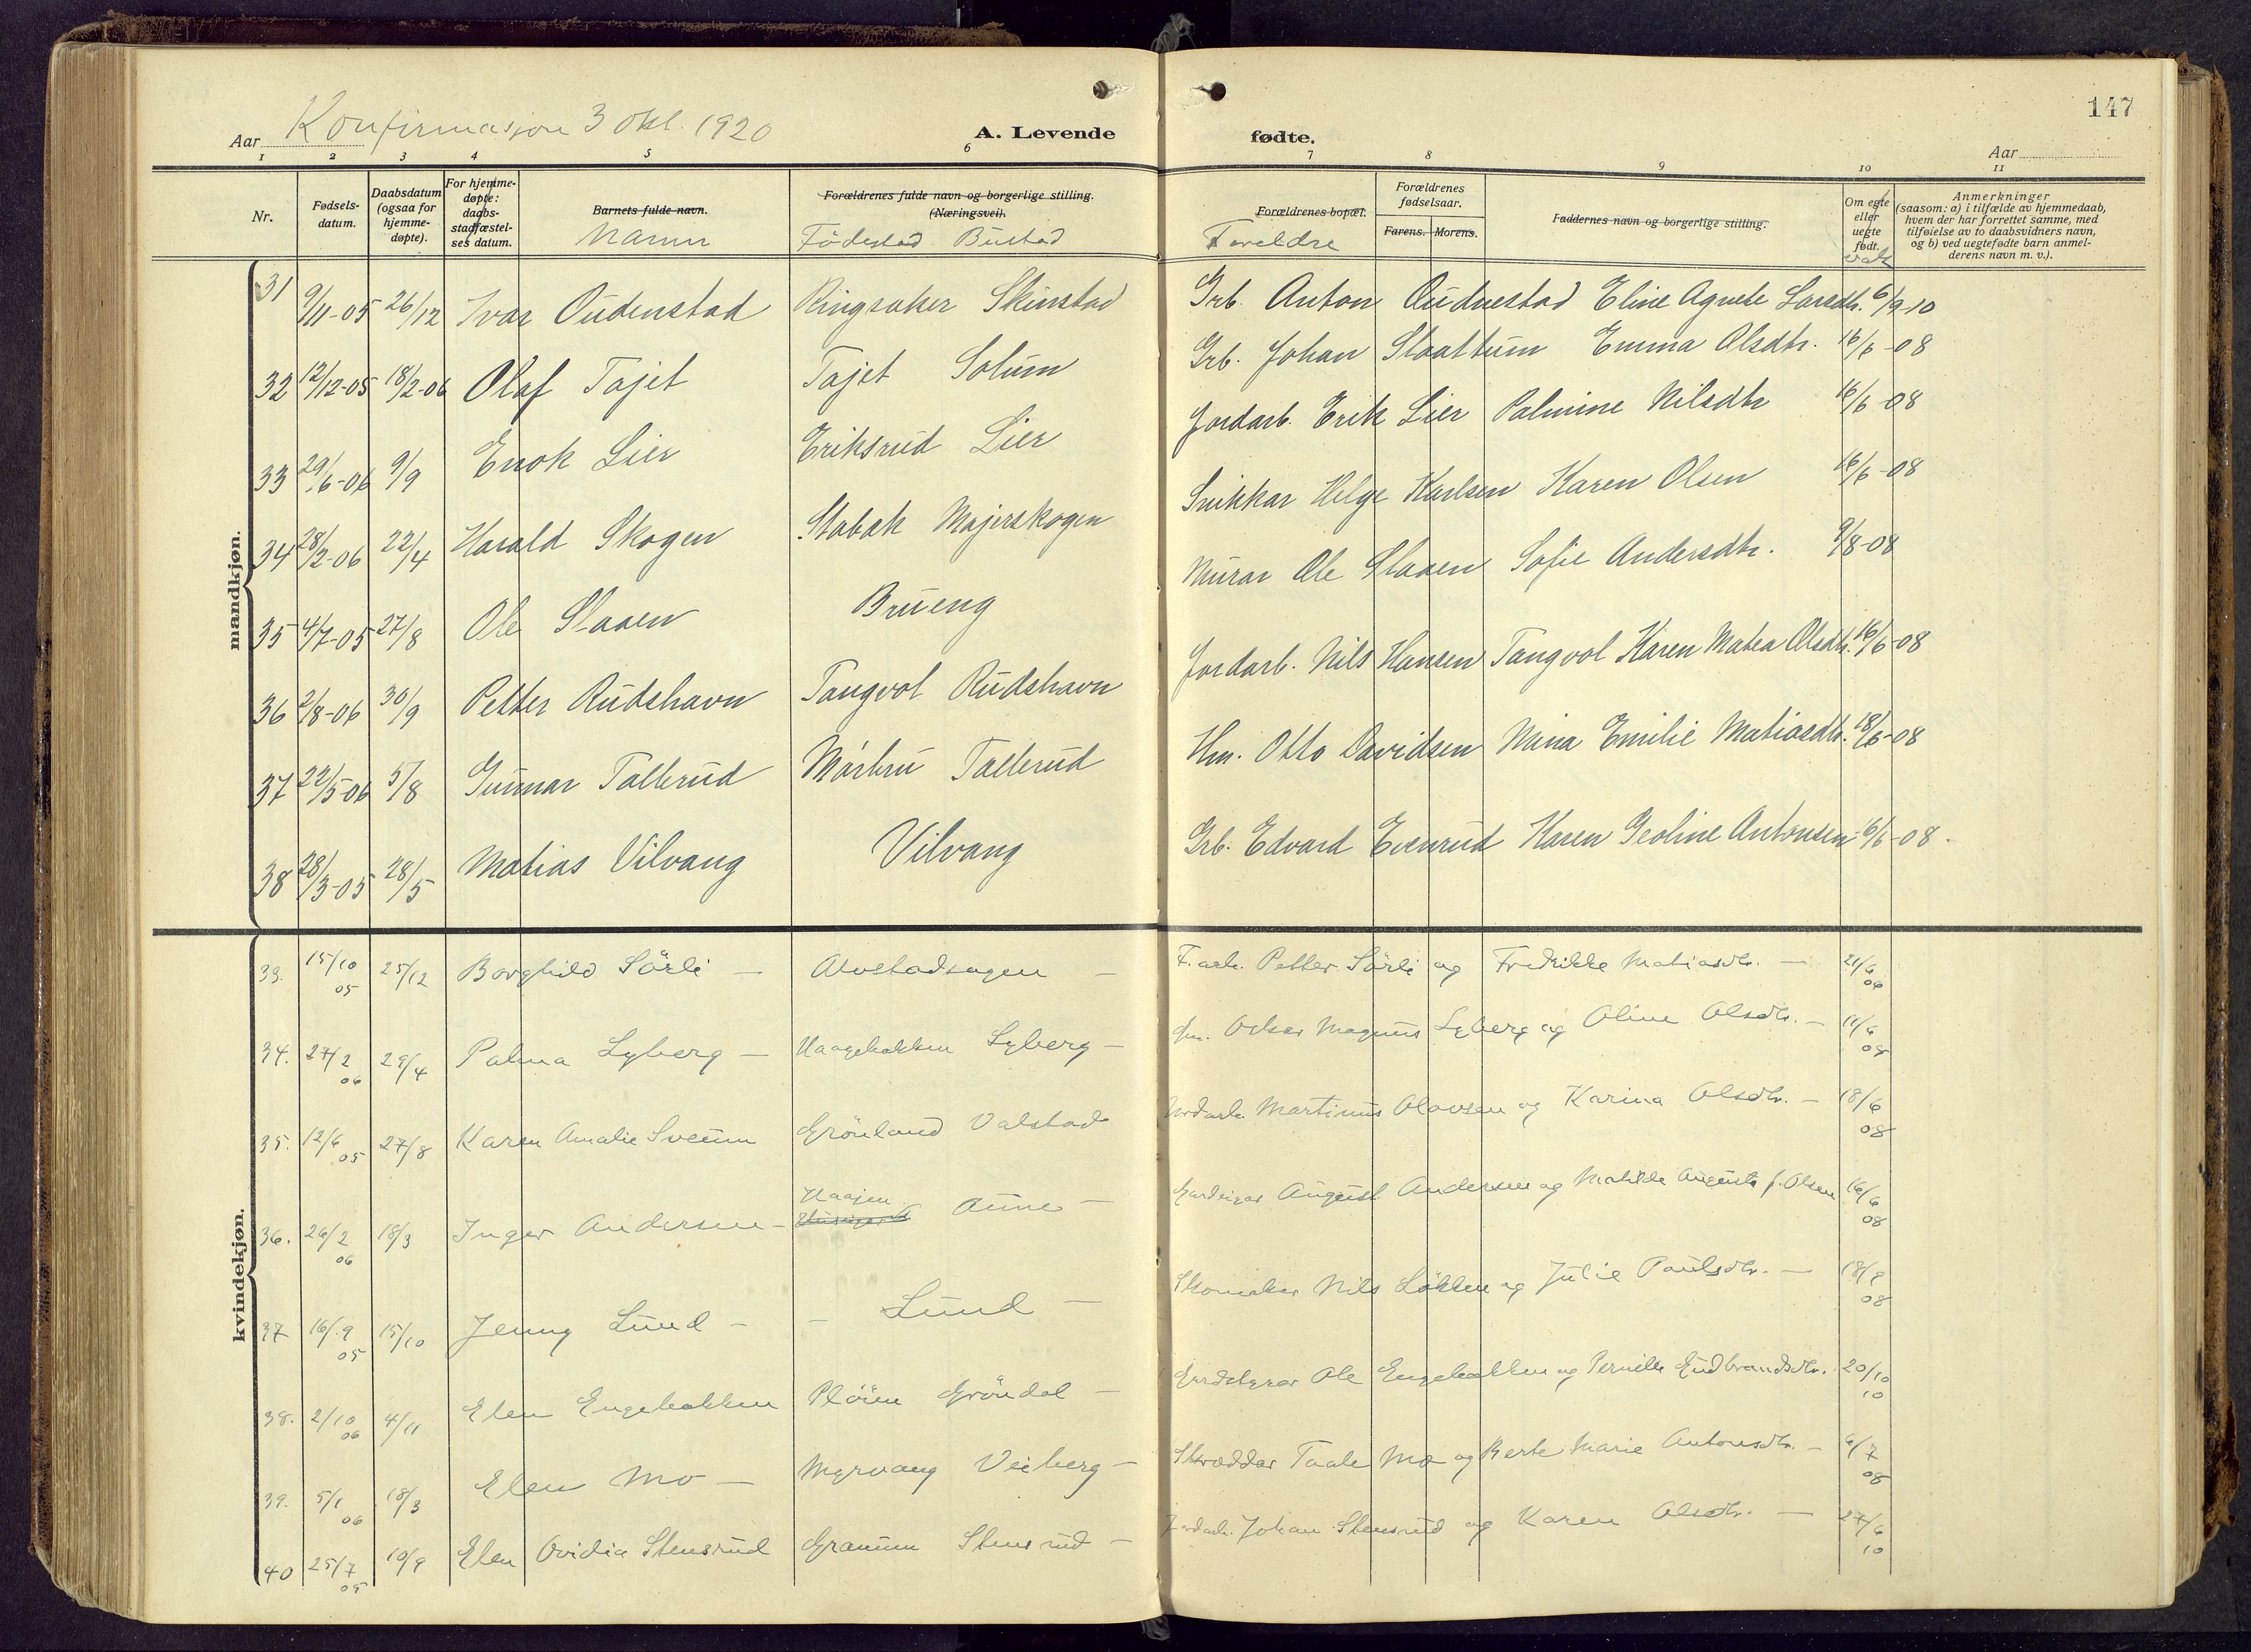 147
Aar Konfirmasjon 3 okt. 1920 A. Levende fødte. Aar
1 2 3 4 5 6 7 8 9 10 11
Nr.
Fødsels-
datum.
Daabsdatum
(ogsaa for
hjemme-
døpte).
For hjemme-
døpte:
daabs-
stadfæstel-
ses datum.
Barnets fulde navn.
Namn
Forældrenes fulde navn og borgerlige stilling.
(Næringsvei).
Födestad Bustad
Forældrenes bopæl.
Foreldre
Forældrenes
fødselsaar.
Farens. Morens.
Faddernes navn og borgerlige stilling.
Om egte
eller
uegte
født.
vak
Anmerkninger
(saasom: a) i tilfælde av hjemmedaab,
hvem der har forrettet samme, med
tilføielse av to daabsvidners navn,
og b) ved uegtefødte barn anmel-
derens navn m. v.).
mandkjøn.
31 9/11-05 26/12 Ivar Oudenstad Ringsaker Skinstad Grb. Anton Oudnestad Eline Agnete Larsdtr. 6/9-10
32 12/12-05 18/2-06 Olaf Tajet Tajet Solum Grb. Johan Slaattum Emma Olsdtr. 16/6-08
33 29/6-06 9/9 Enok Lier Eriksrud Lier Jordarb. Erik Lier Palmine Nilsdtr 16/6-08
34 28/2-06 22/4 Harald Skogen Stabæk Majerskogen Snikkar Helge Karlsen Karen Olsen 16/6-08
35 4/7-05 27/8 Ole Slaaen Brueng Murar Ole Slaaen Sofie Andersdtr. 9/8-08
36 2/8-06 30/9 Petter Rudshavn Tangvol Rudshavn Jordarb. Nils Hansen Tangvol Karen Matea Olsdtr. 16/6-08
37 22/5-06 5/8 Gunnar Tallerud Mörbru Tallerud Hm. Otto Davidsen Mina Emilie Matiasdtr. 18/6-08
38 28/3-05 28/5 Matias Vilvang Vilvang Grb. Edvard Evenrud Karen Geoline Antonsen 16/6-08.
kvindekjøn.
33. 15/10 05 25/12 Borghild Sörli – Alvstadsagen – F. arb. Petter Sörli og Fredrikke Matiasdtr. – 21/6 06
34. 27/2 06 29/4 Palma Lyberg – Haagebakken Lyberg – Gm. Oskar Magnus Lyberg og Oline Olsdtr. – 11/6 08
35. 12/6 05 27/8 Karen Amalie Sveum Grönland Valstad Jordarb. Martinus Olavsen og Karina Olsdtr. – 18/6 08
36. 26/2 06 18/3 Inger Andersen – Haajen Aune – Gardeigar August Andersen og Matilde Augusta f. Olsen 16/6 08
37 16/9 05 15/10 Jenny Lund – – Lund – Skomaker Nils Løkken og Julie Paulsdtr. – 18/8 08
38. 2/10 06 4/11 Elen Engebakken Plöien Gröndal – Ole Engebakken og Pernille Gudbrandsdtr. 20/10 10
39. 5/1 06 18/3 Elen Mo – Myrvang Veiberg – Skræddar Taale Mo og Berte Marie Antonsdtr. – 6/7 08
40 25/7 05 10/9 Elen Ovidia Stensrud Granum Stensrud – Jordarb. Johan Stensrud og Karen Olsdtr. – 27/6 10